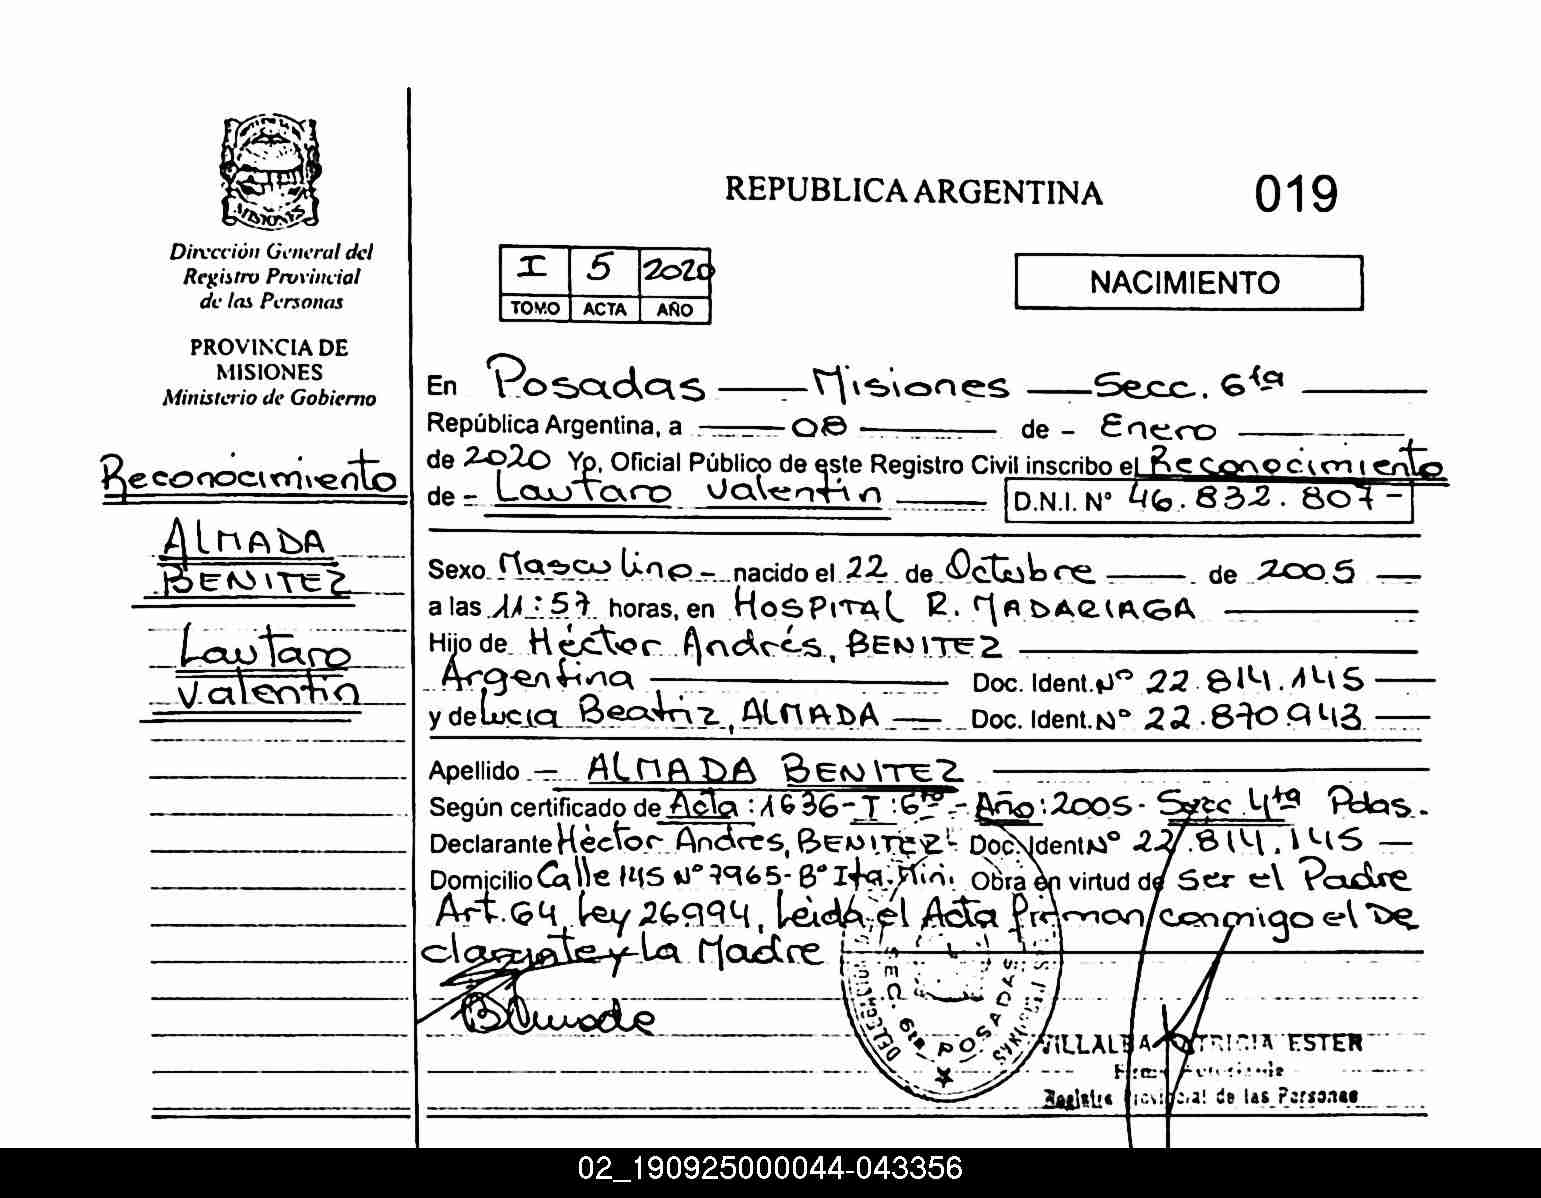 MISIONES
Dirección General del
Registro Provincial
de las Personas
PROVINCIA DE
MISIONES
Ministerio de Gobierno
Reconocimiento
ALMADA
BENITEZ
Lautaro
Valentín
REPUBLICA ARGENTINA 019
I 5 2020
TOMO ACTA AÑO
NACIMIENTO
En Posadas — Misiones — Secc. 6ta
República Argentina, a — 08 — de - Enero
de 2020 Yo, Oficial Público de este Registro Civil inscribo el Reconocimiento
de - Lautaro Valentín — D.N.I. N° 46.832.807-
Sexo Masculino - nacido el 22 de Octubre — de 2005 —
a las 11:57 horas, en HOSPITAL R. MADARIAGA
Hijo de Héctor Andrés, BENITEZ
Argentina — Doc. Ident. N° 22.814.145 —
y de Lucia Beatriz, ALMADA — Doc. Ident. N° 22.870.943 —
Apellido — ALMADA BENITEZ
Según certificado de Acta: 1636-T:6to - Año: 2005- Secc 4ta Pdas.
Declarante Héctor Andres, BENITEZ - Doc. Ident N° 22.814.145 —
Domicilio Calle 145 N° 7965- B° Ita. Miní. Obra en virtud de Ser el Padre
Art. 64 Ley 26994, Leida el Acta firman conmigo el De
clarante y La Madre
SEC. 6ta POSADAS
VILLALBA PATRICIA ESTER
Registro Provincial de las Personas
02_190925000044-043356